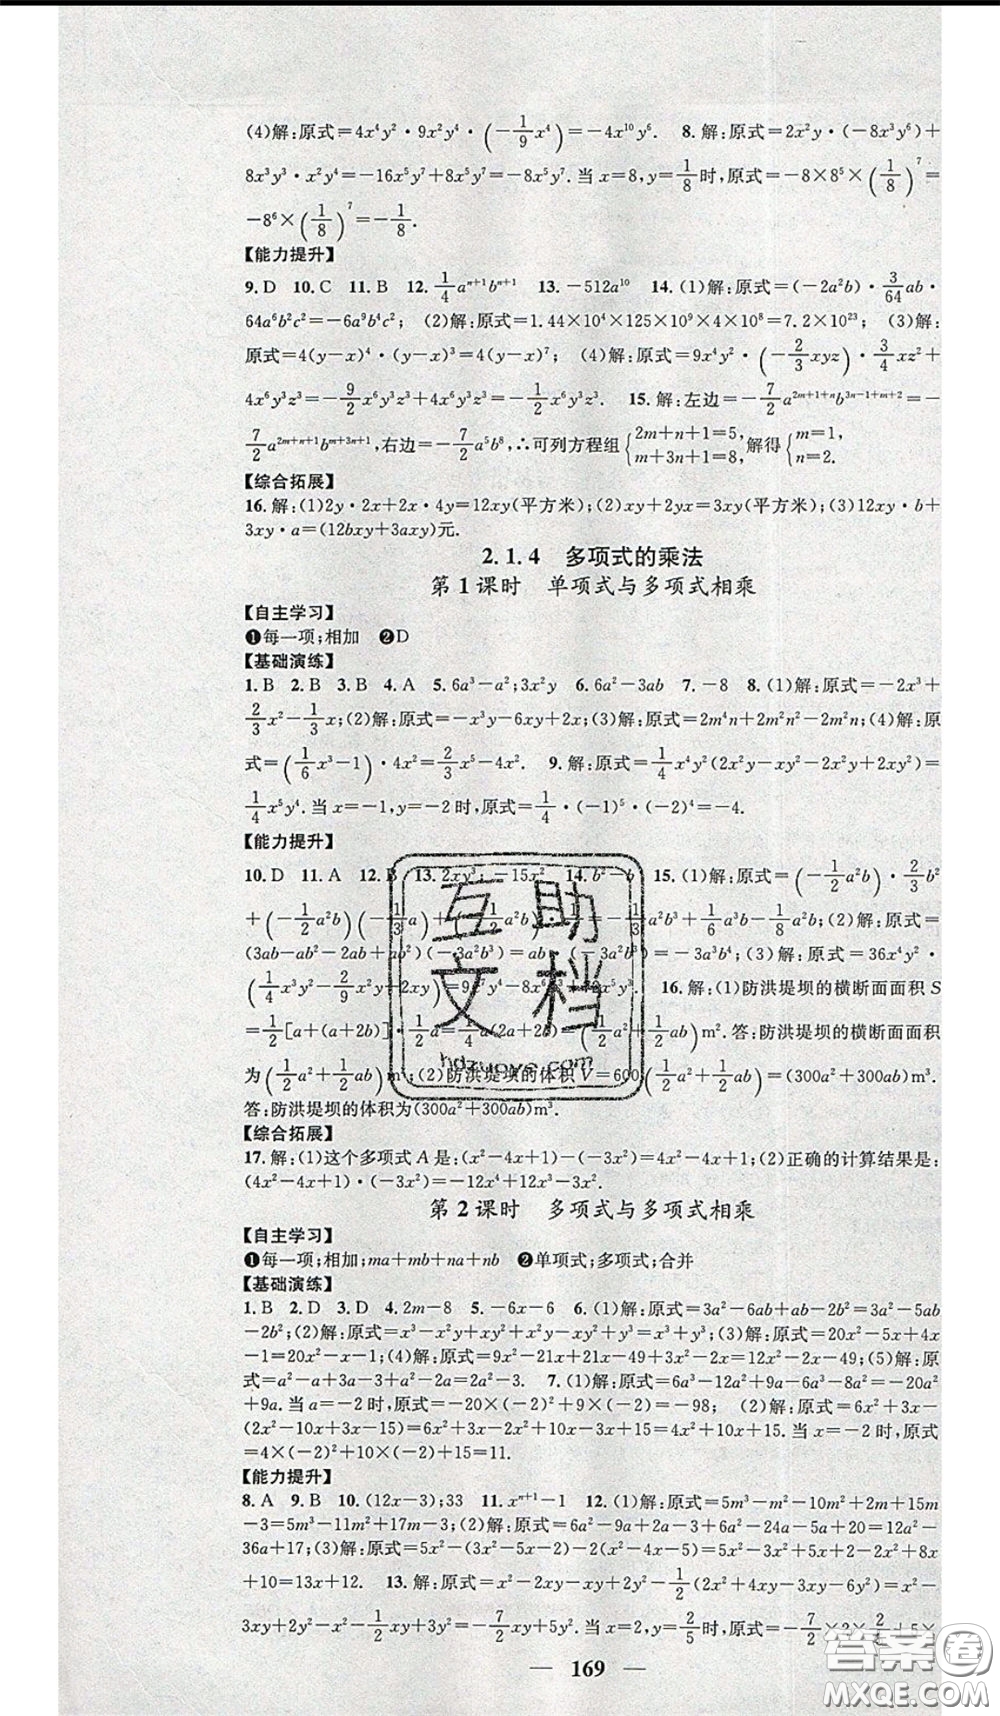 (4)解:原式=4x⁴y²·9x²y⁴·(-1/9x⁴)=-4x¹⁰y⁶. 8.解:原式=2x²y·(-8x³y⁶)+
8x³y³·x²y⁴=-16x⁵y⁷+8x⁵y⁷=-8x⁵y⁷.当x=8,y=1/8时,原式=-8×8⁵×(1/8)⁷=
-8⁶×(1/8)⁷=-1/8.
【能力提升】
9.D 10.C 11.B 12.1/4aⁿ⁺¹bⁿ⁺¹ 13.-512a¹⁰ 14.(1)解:原式=(-2a²b)·3/64ab·
64a⁶b²c²=-6a⁹b⁴c²; (2)解:原式=1.44×10⁴×125×10⁹×4×10⁸=7.2×10²³; (3)解:
原式=4(y-x)⁴·(y-x)³=4(y-x)⁷; (4)解:原式=9x⁴y²·(-2/3xyz)·3/4xz²+
4x⁶y³z³=-9/2x⁶y³z³+4x⁶y³z³=-1/2x⁶y³z³. 15.解:左边=-7/2a²ᵐ⁺¹⁺ⁿb³ⁿ⁻¹⁺ᵐ⁺²=-
7/2a²ᵐ⁺ⁿ⁺¹bᵐ⁺³ⁿ⁺¹,右边=-7/2a⁵b⁸,∴可列方程组{2m+n+1=5, m+3n+1=8,解得{m=1, n=2.
【综合拓展】
16.解:(1)2y·2x+2x·4y=12xy(平方米);(2)xy+2yx=3xy(平方米);(3)12xy·b+
3xy·a=(12bxy+3axy)元.
2.1.4 多项式的乘法
第1课时 单项式与多项式相乘
【自主学习】
❶每一项;相加 ❷D
【基础演练】
1.B 2.B 3.B 4.A 5.6a³-a²;3x²y 6.6a²-3ab 7.-8 8.(1)解:原式=-2x³+
2/3x²-1/3x;(2)解:原式=-x³y-6xy+2x;(3)解:原式=2m⁴n+2m²n²-2m²n;(4)解:原
式=(1/6x³-1)·4x²=2/3x⁵-4x². 9.解:原式=1/4x⁴y²(2x²y-xy²-2x²y+2xy²)=
1/4x⁵y⁴.当x=-1,y=-2时,原式=1/4·(-1)⁵·(-2)⁴=-4.
【能力提升】
10.D 11.A 12.B 13.2xy³;-15x² 14.b²-b 15.(1)解:原式=(-1/2a²b)·2/3b²
+(-1/2a²b)(-1/3a)+(-1/2a²b)·=-1/3a²b³+1/6a³b-1/8a²b;(2)解:原式=
(3ab-ab²-2ab+ab²)(-3a²b²)=ab·=-3a³b³;(3)解:原式=36x⁴y²·
(1/4x³y²-2/9x²y+2xy)=9x⁷y⁴-8x⁶y³. 16.解:(1)防洪堤坝的横断面面积S
=1/2[a+(a+2b)]·1/2a=1/4a(2a+2b)=(1/2a²+1/2ab)m².答:防洪堤坝的横断面面积
为(1/2a²+1/2ab)m²;(2)防洪堤坝的体积V=600(1/2a²+1/2ab)=(300a²+300ab)m³.
答:防洪堤坝的体积为(300a²+300ab)m³.
【综合拓展】
17.解:(1)这个多项式A是:(x²-4x+1)-(-3x²)=4x²-4x+1;(2)正确的计算结果是:
(4x²-4x+1)·(-3x²)=-12x⁴+12x³-3x².
第2课时 多项式与多项式相乘
【自主学习】
❶每一项;相加;ma+mb+na+nb ❷单项式;多项式;合并
【基础演练】
1.B 2.D 3.D 4.2m-8 5.-6x-6 6.(1)解:原式=3a²-6ab+ab-2b²=3a²-5ab
-2b²;(2)解:原式=x³-x²y+xy²+x²y-xy²+y³=x³+y³;(3)解:原式=20x²-5x+4x
-1=20x²-x-1;(4)解:原式=9x²-21x+21x-49-7x²-2x=2x²-2x-49;(5)解:原
式=a²-a-3a+3-a²+4-2a=2a²-3. 7.(1)解:原式=6a³-12a²+9a-6a³-8a²=-20a²
+9a.当a=-2时,原式=-20×(-2)²+9×(-2)=-98; (2)解:原式=6x²+3x-
(2x²-10x+3x-15)=6x²+3x-2x²+10x-3x+15=4x²+10x+15.当x=-2时,原式
=4×(-2)²+10×(-2)+15=11.
【能力提升】
8.A 9.B 10.(12x-3);33 11.xⁿ⁺¹-1 12.(1)解:原式=5m³-m²-10m²+2m+15m
-3=5m³-11m²+17m-3; (2)解:原式=6a²-9a+2a-3-6a²-24a-5a+20=-
36a+17;(3)解:原式=5x²-(3x²-5x-2)-2(x²-4x-5)=5x²-3x²+5x+2-2x²+8x
+10=13x+12. 13.解:原式=x²-2xy-xy+2y²-1/2(2x²-4xy+3xy-6y²)=x²-
3xy+2y²-x²-1/2xy+3y²=-7/2xy+5y².当x=2,y=2/5时,原式=-7/2×2×2/5+5×
— 169 —
互助
文档
hdzuoye.com
答案圈
MXQE.COM